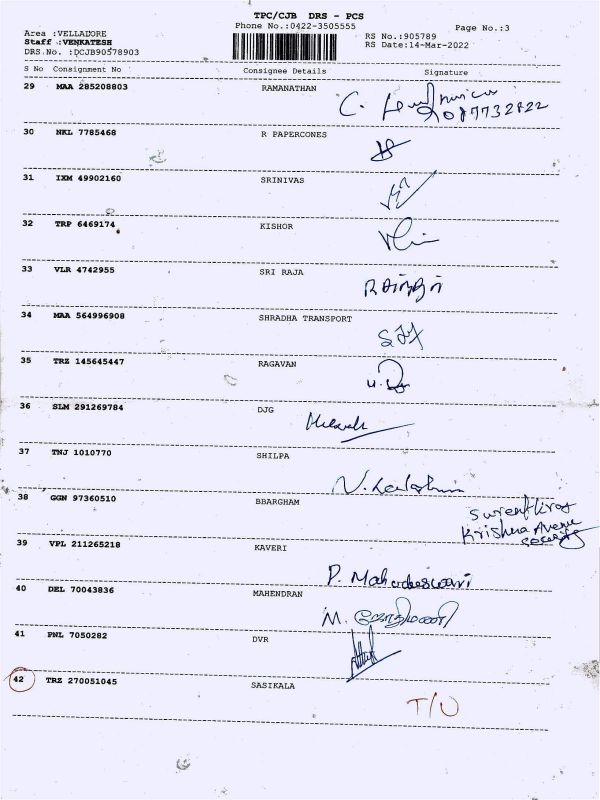 TPC/CJB DRS - PCS
Phone No.:0422-3505555
Page No.:3
Area :VELLADORE
RS No.:905789
Staff :VENKATESH
RS Date:14-Mar-2022
DRS No. :DCJB90578903
S No Consignment No Consignee Details Signature
29 MAA 285208803 RAMANATHAN
C.
9087732822
30 NKL 7785468 R PAPERCONES
31 IXM 49902160 SRINIVAS
32 TRP 6469174 KISHOR
33 VLR 4742955 SRI RAJA
34 MAA 564996908 SHRADHA TRANSPORT
35 TRZ 145645447 RAGAVAN
36 SLM 291269784 DJG
37 TNJ 1010770 SHILPA
N. Lakshmi
38 GGN 97360510 BBARGHAM
Krishna Avenue
39 VPL 211265218 KAVERI
P. Mahadeswari
40 DEL 70043836 MAHENDRAN
M. ஜோதிமணி
41 PNL 7050282 DVR
42 TRZ 270051045 SASIKALA
T/U